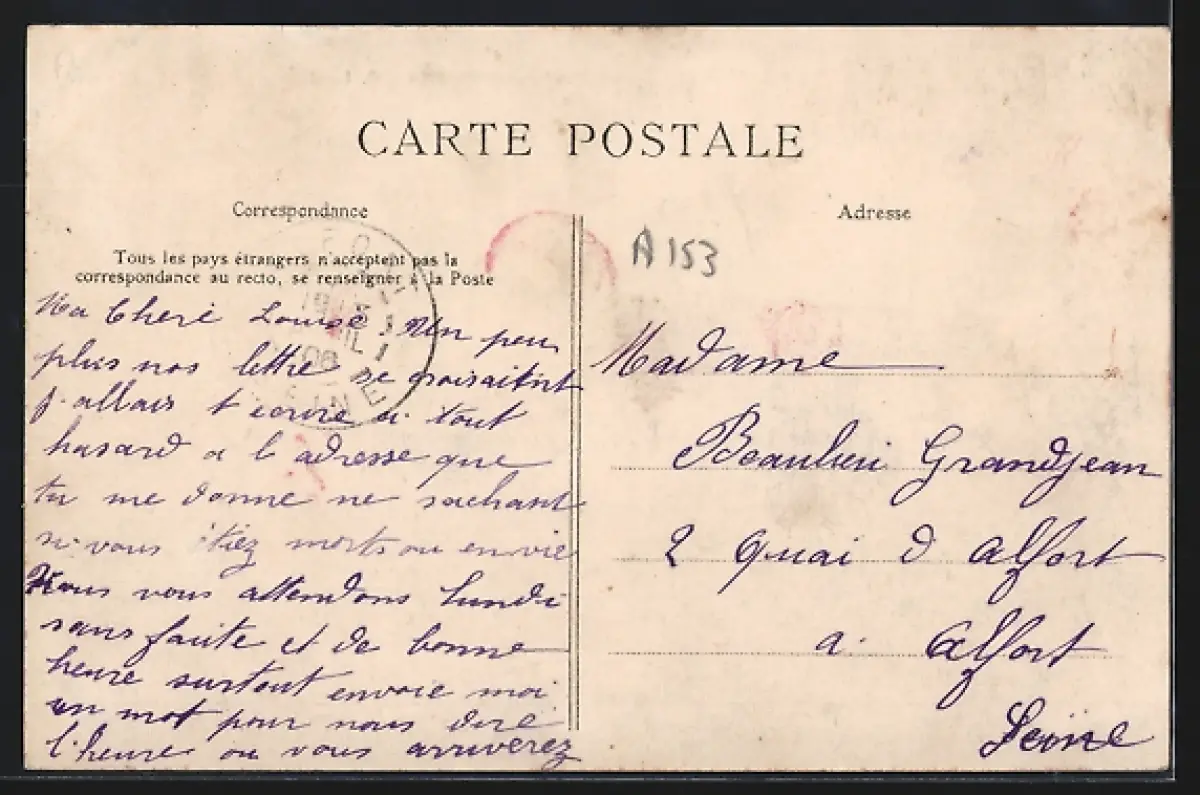 CARTE POSTALE
Correspondance
Adresse
Tous les pays étrangers n'acceptent pas la
correspondance au recto, se renseigner à la Poste
A 153
Ma Cheré Louise Un peu
plus nos lettre se croisaitent
j'allais t ecrire a tout
hasard a l adresse que
tu me donne ne sachant
si vous étiez morts ou en vie
Nous vous attendons lundi
sans faute et de bonne
heure surtout envoie moi
un mot pour nous dire
l'heure ou vous arriverez
Madame
Beaulieu Grandjean
2 Quai d Alfort
a Alfort
Seine